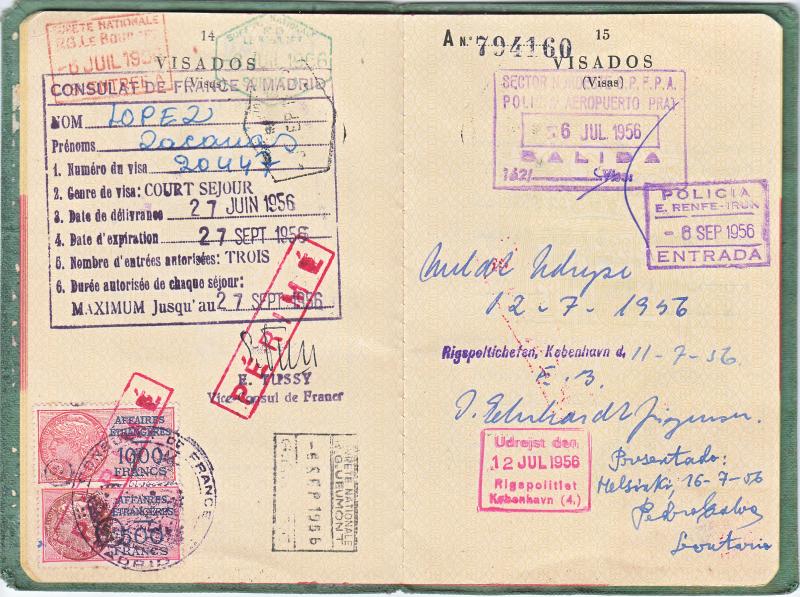 14
SURETE NATIONALE
P.G. LE BOURGET
-6 JUIL 1956
SURETE NATIONALE
LE BOURGET
1956
VISADOS
(Visas)
CONSULAT DE FRANCE A MADRID
NOM LOPEZ
Prénoms
1. Numéro du visa 20447
2. Genre de visa: COURT SEJOUR
3. Date de délivrance 27 JUIN 1956
4. Date d'expiration 27 SEPT 1956
5. Nombre d'entrées autorisées: TROIS
6. Durée autorisée de chaque séjour:
MAXIMUM Jusqu'au 27 SEPT 1956
PÉRIMÉ
F. TUSSY
Vice-Consul de France
AFFAIRES
ÉTRANGÈRES
1000
FRANCS
AFFAIRES
ÉTRANGÈRES
500
FRANCS
DE FRANCE
MADRID
SURETE NATIONALE
-6 SEP 1956
A Nº 794160
15
VISADOS
(Visas)
POLICIA AEROPUERTO PRAT
6 JUL 1956
SALIDA
POLICIA
E. RENFE-IRUN
- 6 SEP 1956
ENTRADA
Anmeldt Udrejse
12-7-1956
Rigspolitichefen, København d. 11-7-56
E. B.
Udrejst den
12 JUL 1956
Rigspolitiet
København (4.)
Presentado:
Helsinki, 16-7-56